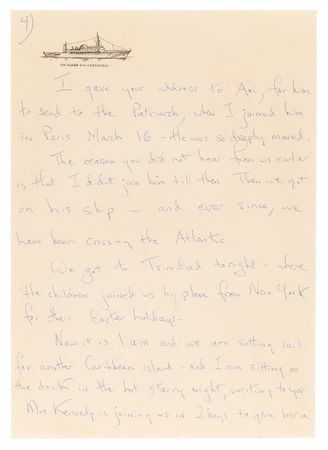 4)
I gave your address to Ari, for him
to send to the Patriarch, when I joined him
in Paris March 16 - He was so deeply moved.
The reason you did not hear from us earlier
is that I didn't join him till then. Then we got
on his ship — and ever since, we
have been crossing the Atlantic.
We got to Trinidad tonight - where
the children joined us by plane from New York
for their Easter holidays -
Now it is 1 am and we are setting sail
for another Caribbean island - and I am sitting on
the deck in the hot starry night, writing to you.
Mrs Kennedy is joining us in 2 days, to give her a